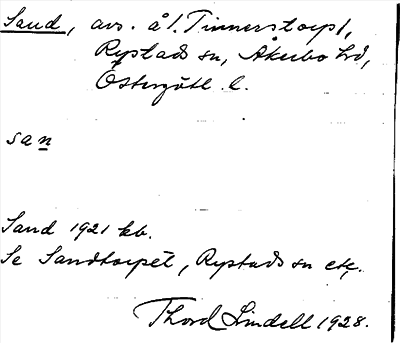 Sand, avs. å l. Tinnerstorp 1,
Rystads sn, Åkerbo hd,
Östergötl. l.
san
Sand 1921 kb.
Se Sandtorpet, Rystads sn etc.
Thord Lindell 1928.